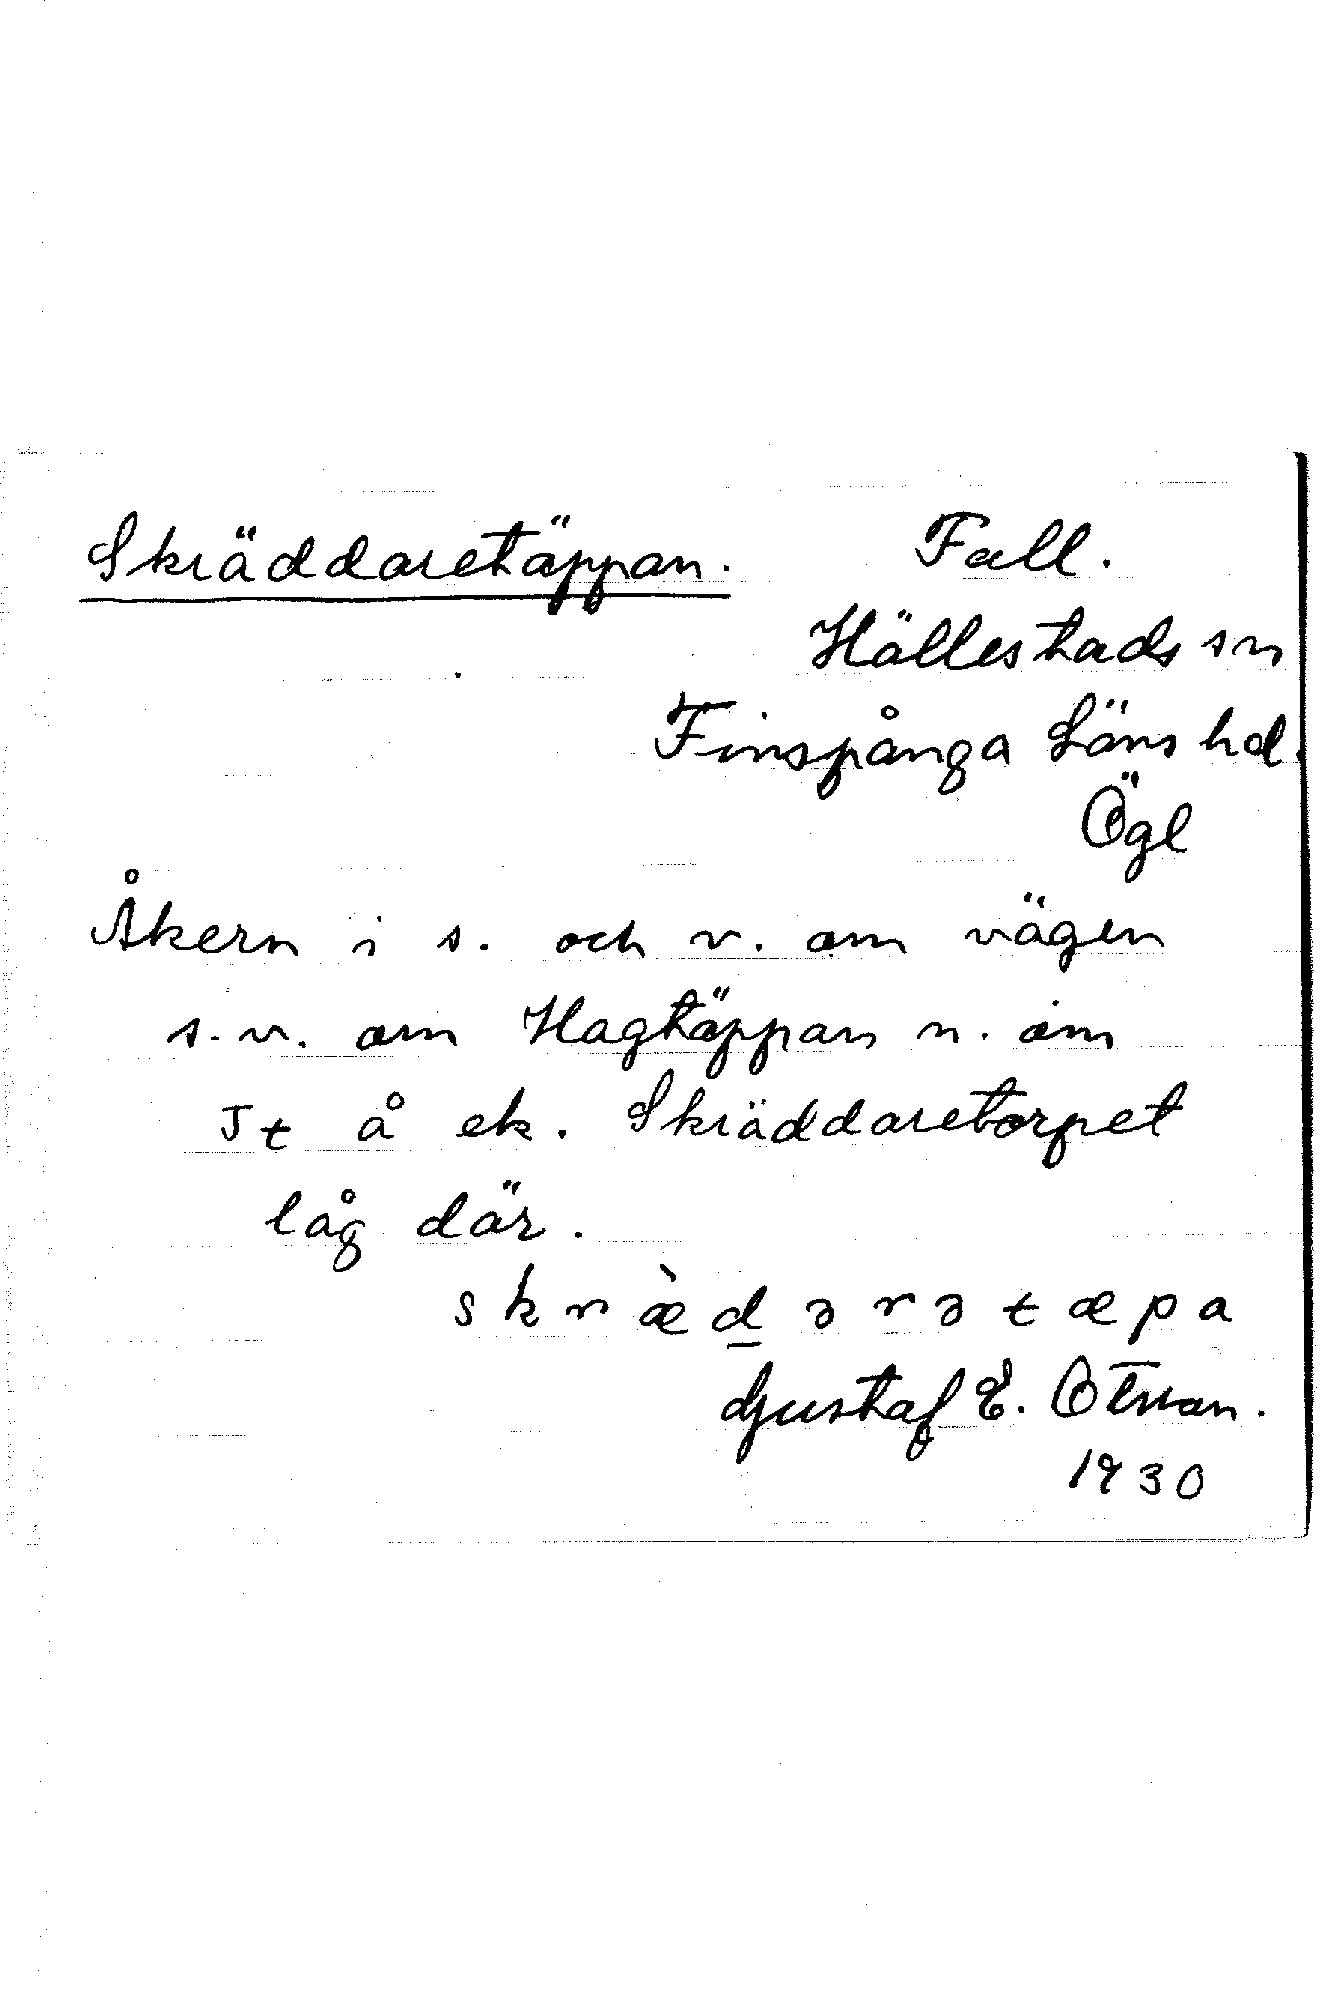 Skräddaretäppan. Fall.
Hällestads sn
Finspånga Läns hd.
Ögl
Åkern i s. och v. om vägen
s.v. om Hagtäppan n. om
Jt å ek. Skräddaretorpet
låg där.
skræ̀d̲ərətæpa
Gustaf E. Öman.
1930